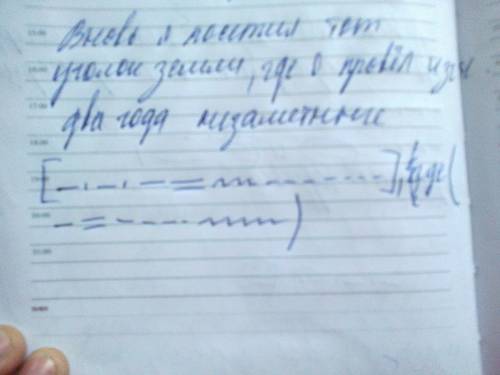 Вновь я посетил тот
уголок земли, где я провёл изгн
два года незаметные
[— . — . — = ~~~ - - - - - - -], где (
— = - - - - ~~~~)